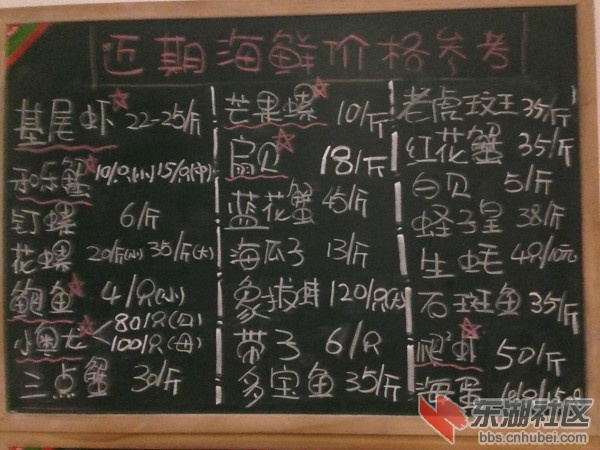 近期海鲜价格参考
基尾虾 22-25/斤
和乐蟹 10/只(小) 15/只(中)
钉螺 6/斤
花螺 20/斤(小) 35/斤(大)
鲍鱼 4/只(小)
小奥龙 80/只(公)
100/只(母)
三点蟹 30/斤
芒果螺 10/斤
扇贝 18/斤
蓝花蟹 45/斤
海瓜子 13/斤
象拔蚌 120/只(大)
带子 6/只
多宝鱼 35/斤
老虎斑王 35/斤
红花蟹 35/斤
白贝 5/斤
蛏子皇 38/斤
生蚝 4只/10元
石斑鱼 35/斤
爬虾 50/斤
海蛋
东湖社区
bbs.cnhubei.com